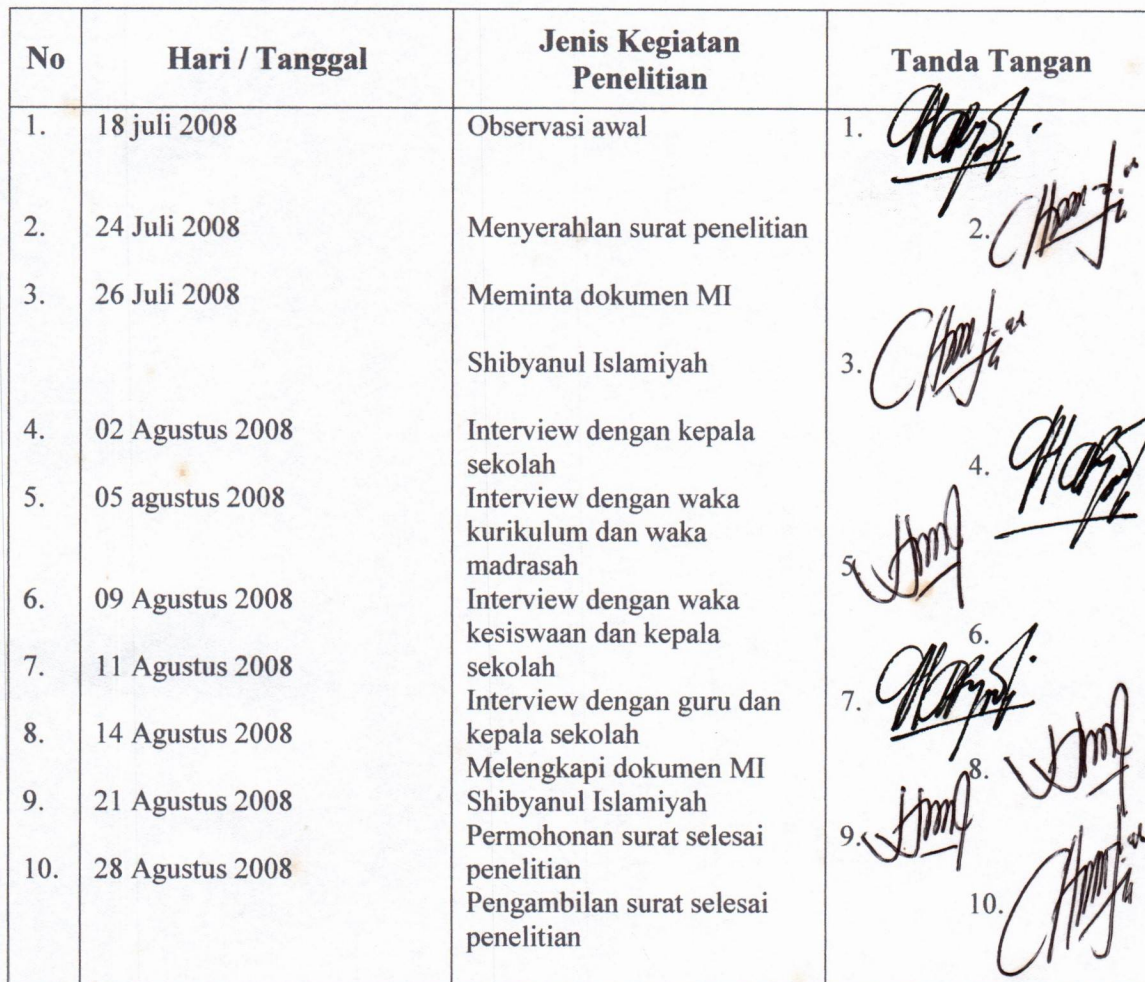 No Hari / Tanggal Jenis Kegiatan Penelitian Tanda Tangan
1. 18 juli 2008 Observasi awal 1.
2. 24 Juli 2008 Menyerahlan surat penelitian 2.
3. 26 Juli 2008 Meminta dokumen MI
Shibyanul Islamiyah 3.
4. 02 Agustus 2008 Interview dengan kepala
sekolah 4.
5. 05 agustus 2008 Interview dengan waka
kurikulum dan waka
madrasah 5.
6. 09 Agustus 2008 Interview dengan waka
kesiswaan dan kepala 6.
7. 11 Agustus 2008 sekolah
Interview dengan guru dan 7.
8. 14 Agustus 2008 kepala sekolah
Melengkapi dokumen MI 8.
9. 21 Agustus 2008 Shibyanul Islamiyah
Permohonan surat selesai 9.
10. 28 Agustus 2008 penelitian
Pengambilan surat selesai 10.
penelitian